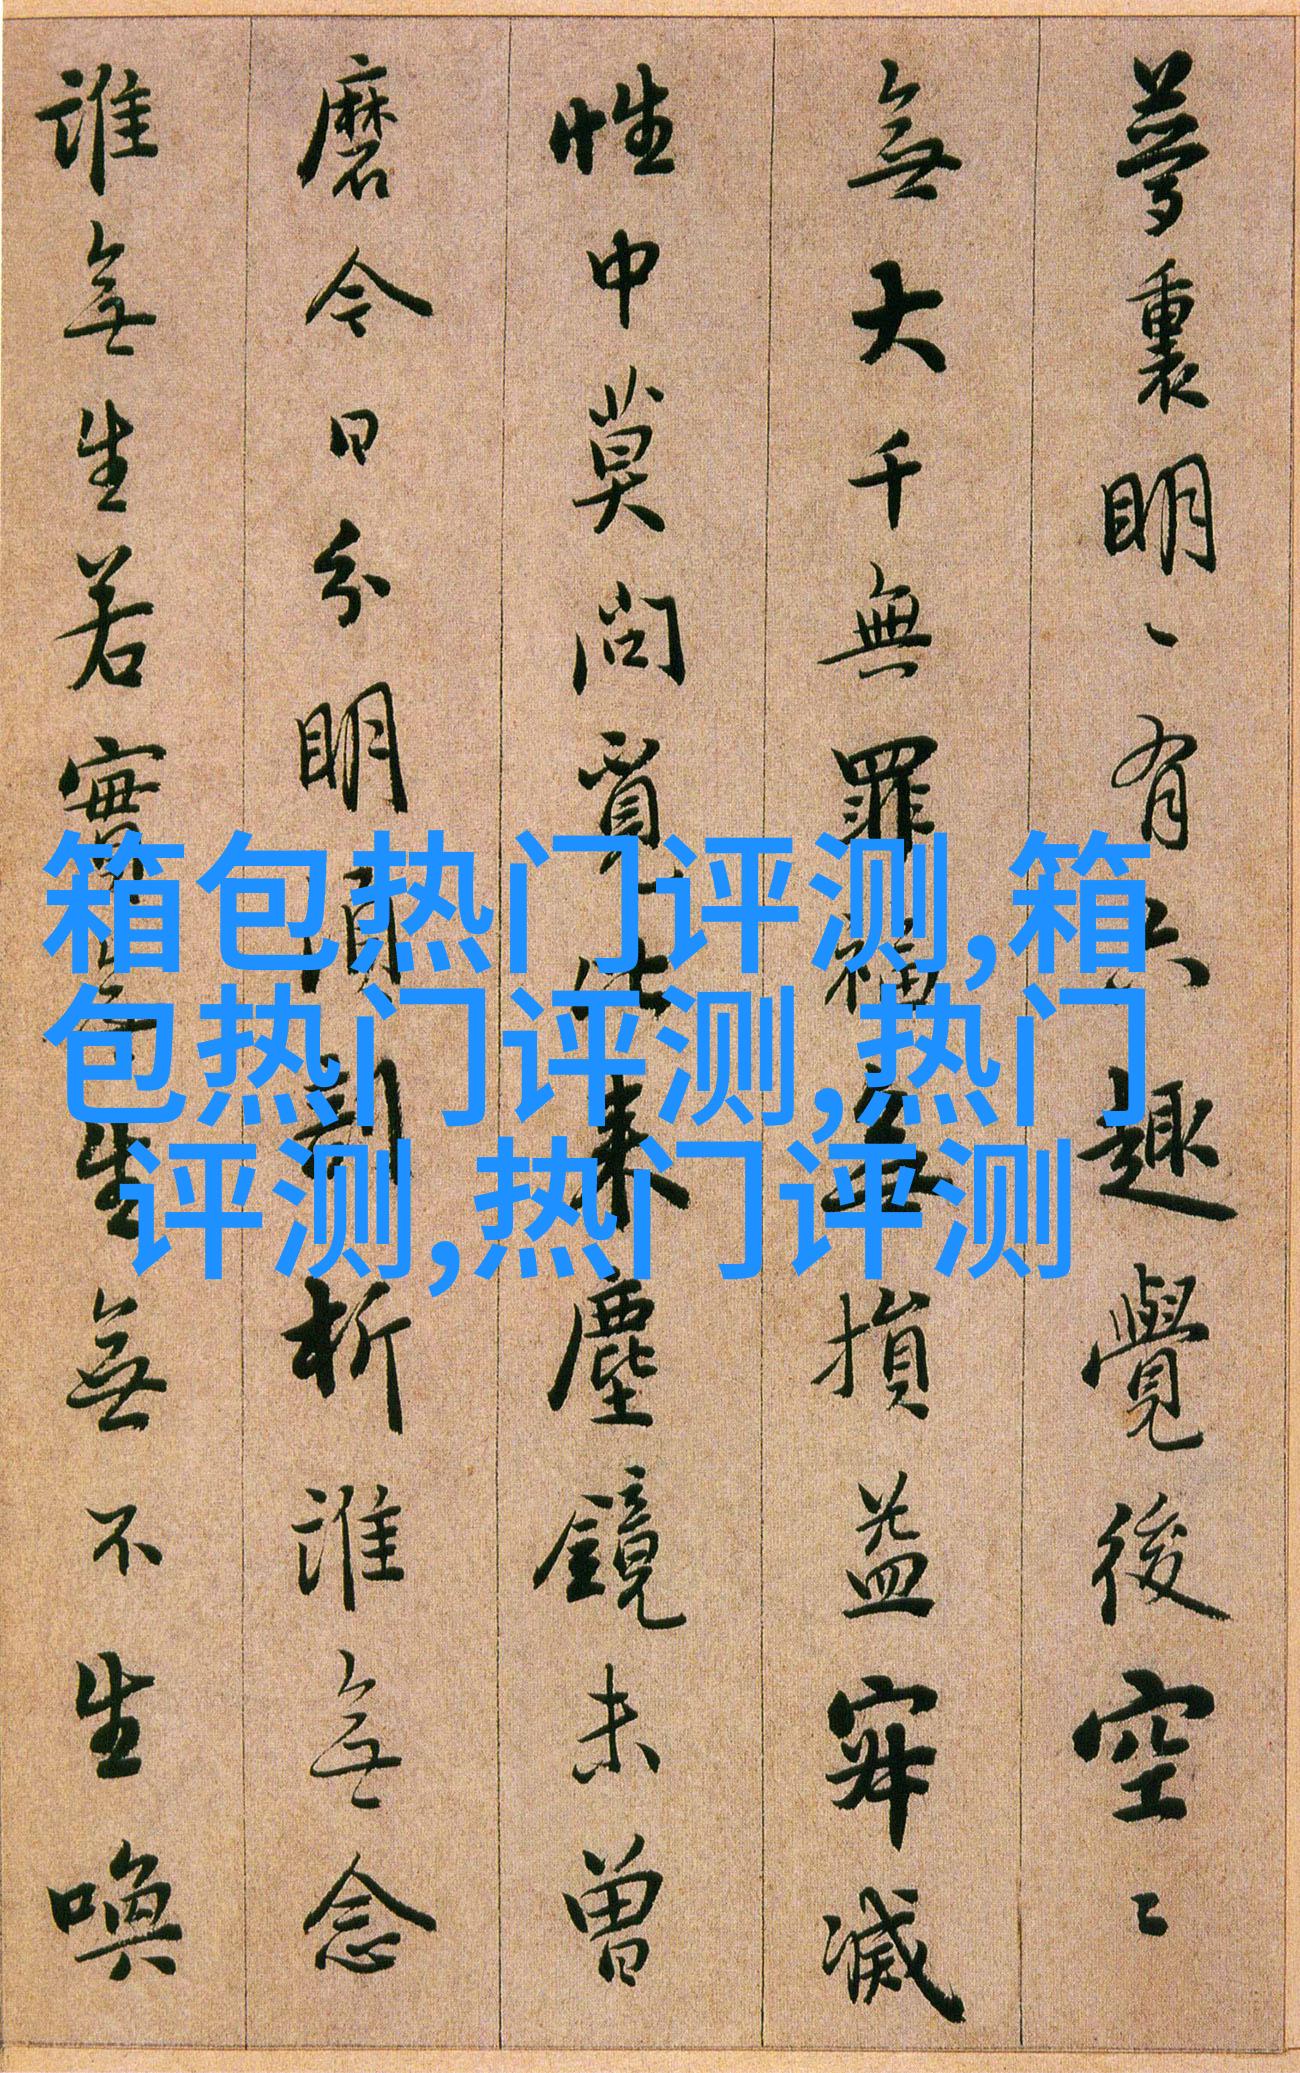 夢裏明〻有六趣覺後空〻
無大千無罪福無損益寂滅
性中莫問覓比来塵鏡未曾
磨今日分明須剖析誰無念
誰無生若實無生無不生喚
箱包热门评测,箱
包热门评测,热门
评测,热门评测